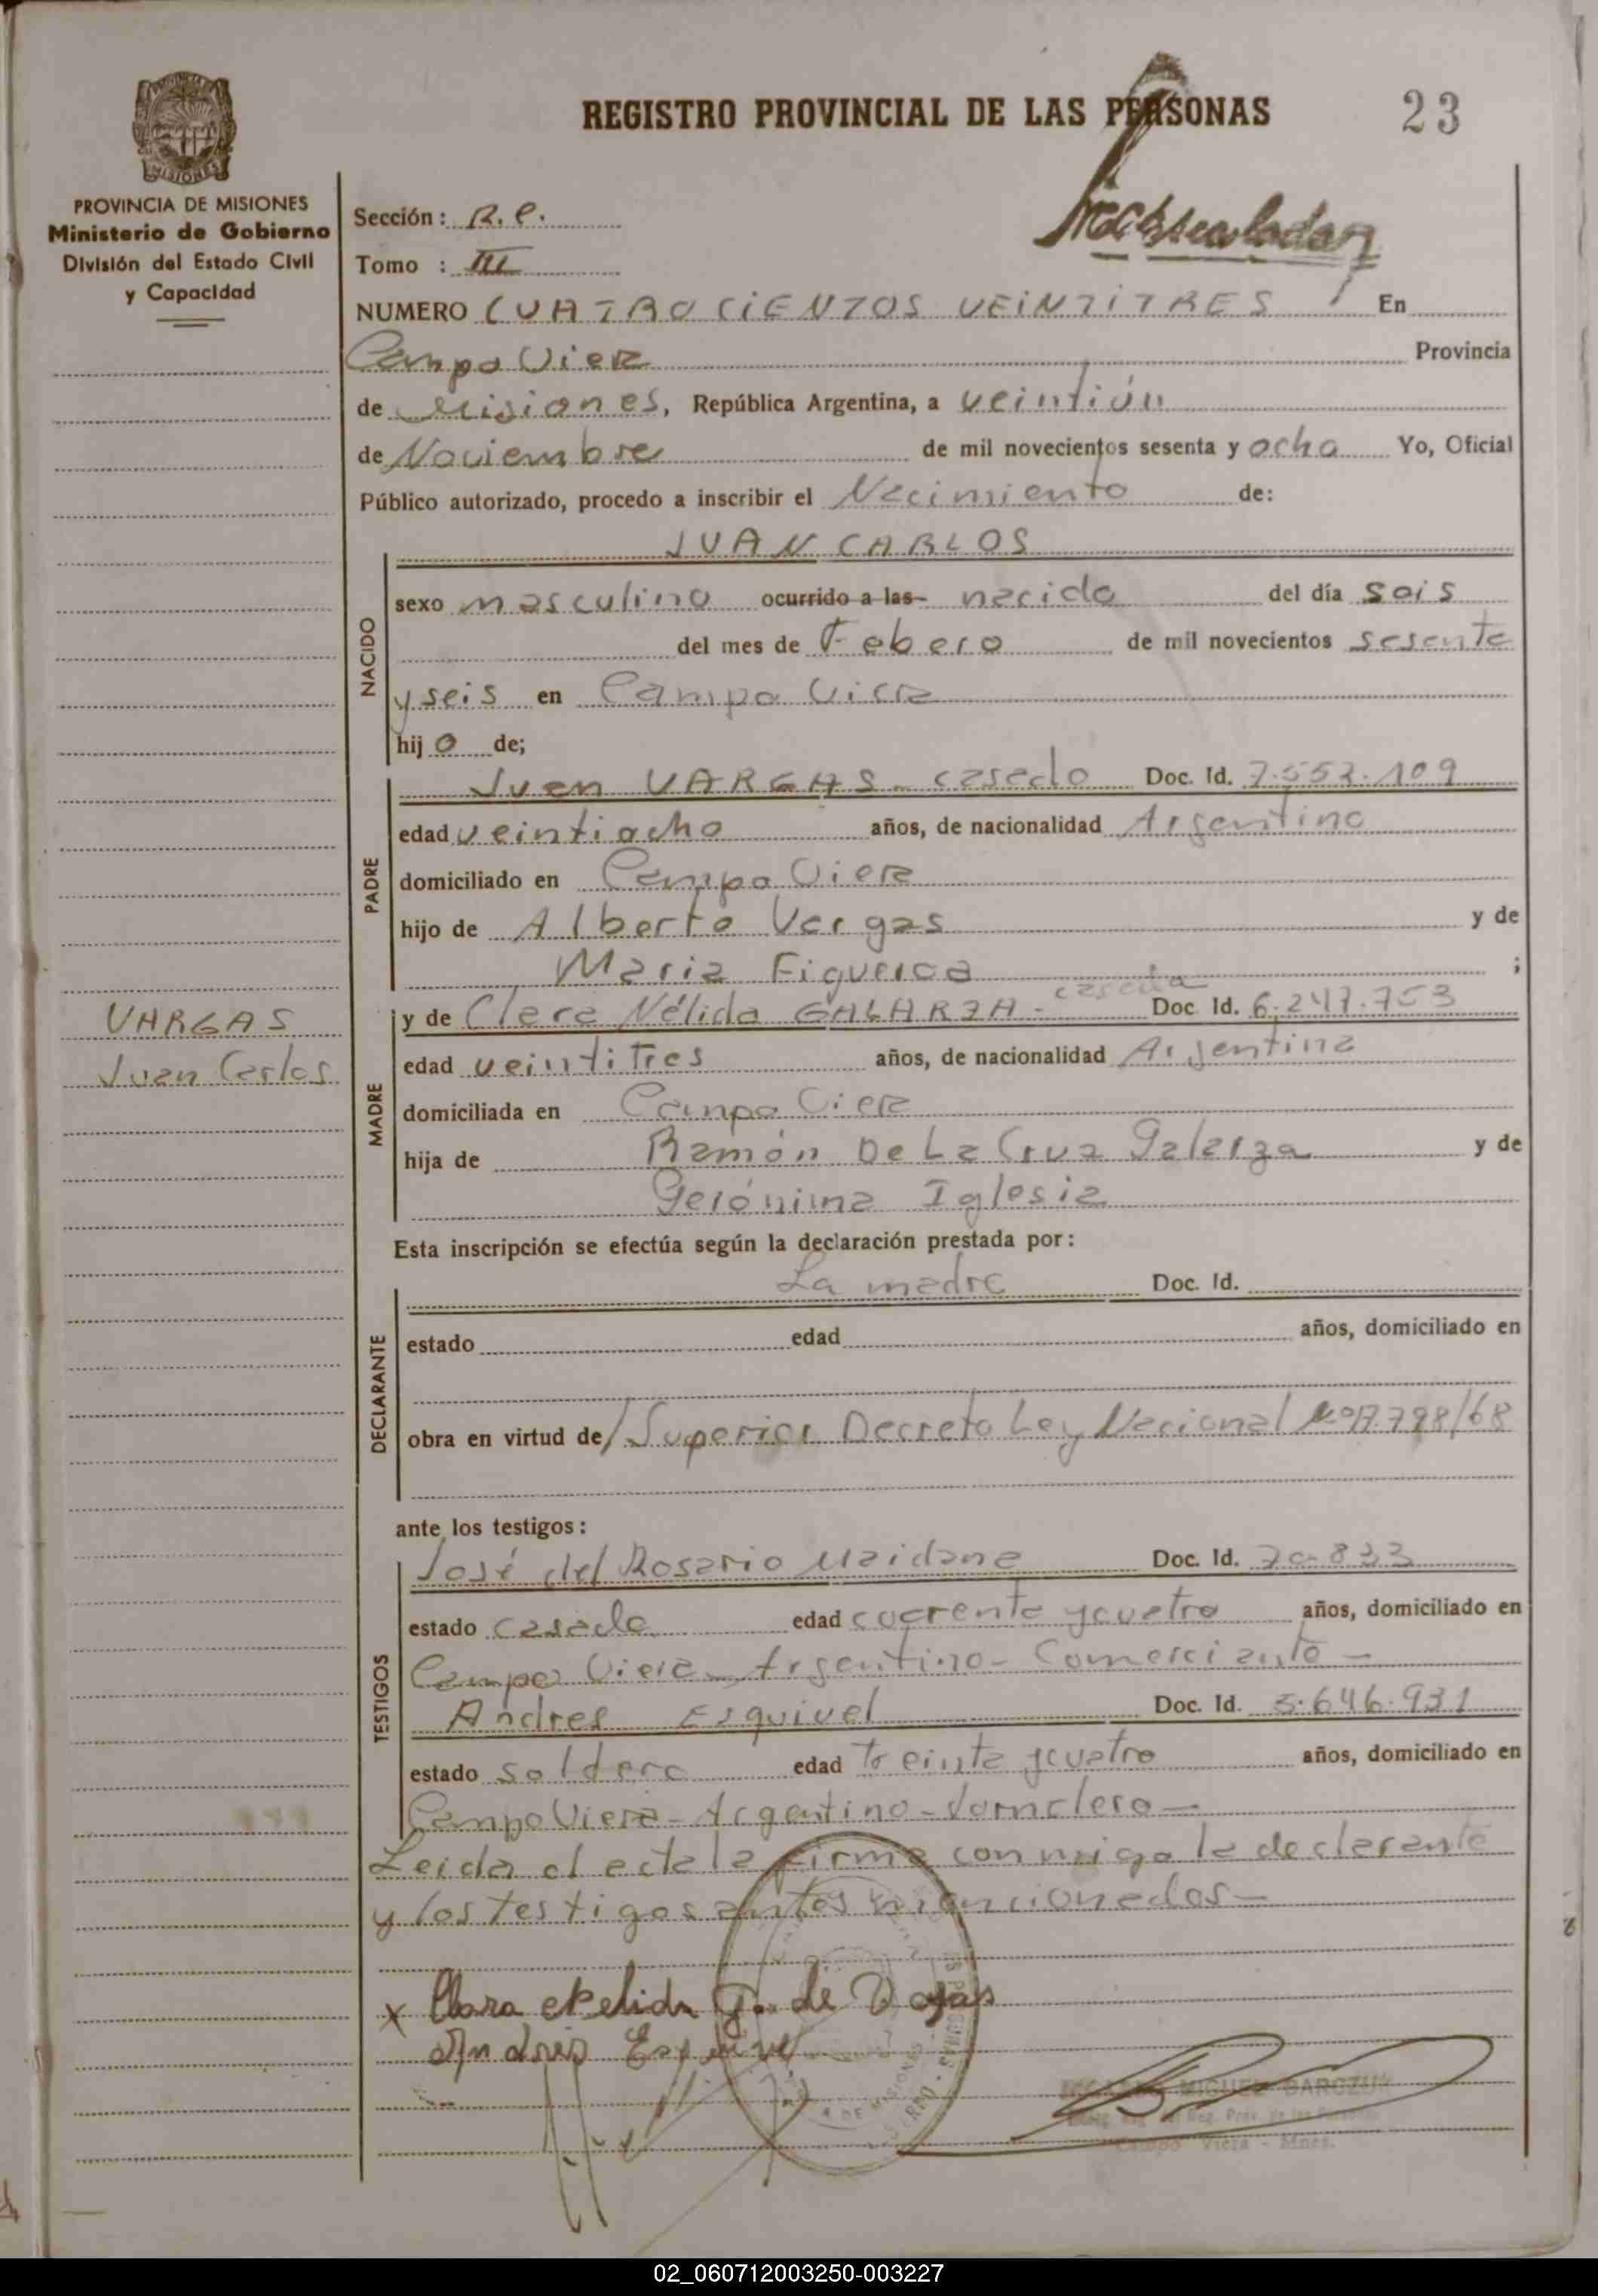 REGISTRO PROVINCIAL DE LAS PERSONAS
23
PROVINCIA DE MISIONES
Ministerio de Gobierno
División del Estado Civil
y Capacidad
Sección: R.C.
Tomo : III
NUMERO CUATROCIENTOS VEINTITRES En
Campo Viera Provincia
de Misiones, República Argentina, a veintiún
de Noviembre de mil novecientos sesenta y ocho Yo, Oficial
Público autorizado, procedo a inscribir el Nacimiento de:
NACIDO
JUAN CARLOS
sexo masculino ocurrido a las nacido del día seis
del mes de Febero de mil novecientos sesenta
y seis en Campo Viera
hijo de;
PADRE
Juan VARGAS - casado Doc. Id. 7.553.109
edad veintiocho años, de nacionalidad Argentino
domiciliado en Campo Viera
hijo de Alberto Vargas y de
Maria Figueroa ;
VARGAS
Juan Carlos
MADRE
y de Clara Nélida GALARZA - casada Doc. Id. 6.247.753
edad veintitres años, de nacionalidad Argentina
domiciliada en Campo Viera
hija de Ramón De La Cruz Galarza y de
Gerónima Iglesia
Esta inscripción se efectúa según la declaración prestada por:
DECLARANTE
La madre Doc. Id.
estado edad años, domiciliado en
obra en virtud de/ Superior Decreto Ley Nacional Nº 17.798/68
ante los testigos:
TESTIGOS
José del Rosario Maidana Doc. Id. 70.833
estado casado edad cuarenta y cuatro años, domiciliado en
Campo Viera - Argentino - Comerciante -
Andres Esquivel Doc. Id. 5.646.931
estado soldero edad treinta y cuatro años, domiciliado en
Campo Viera - Argentino - Jornalero -
Leida el acta la firma conmigo la declarante
y los testigos antes mencionados -
x Clara Nelida G. de Vargas
Andres Esquivel
MIGUEL BARCZUK
Reg. Prov. de las Personas
Campo Viera - Mnes.
02_060712003250-003227